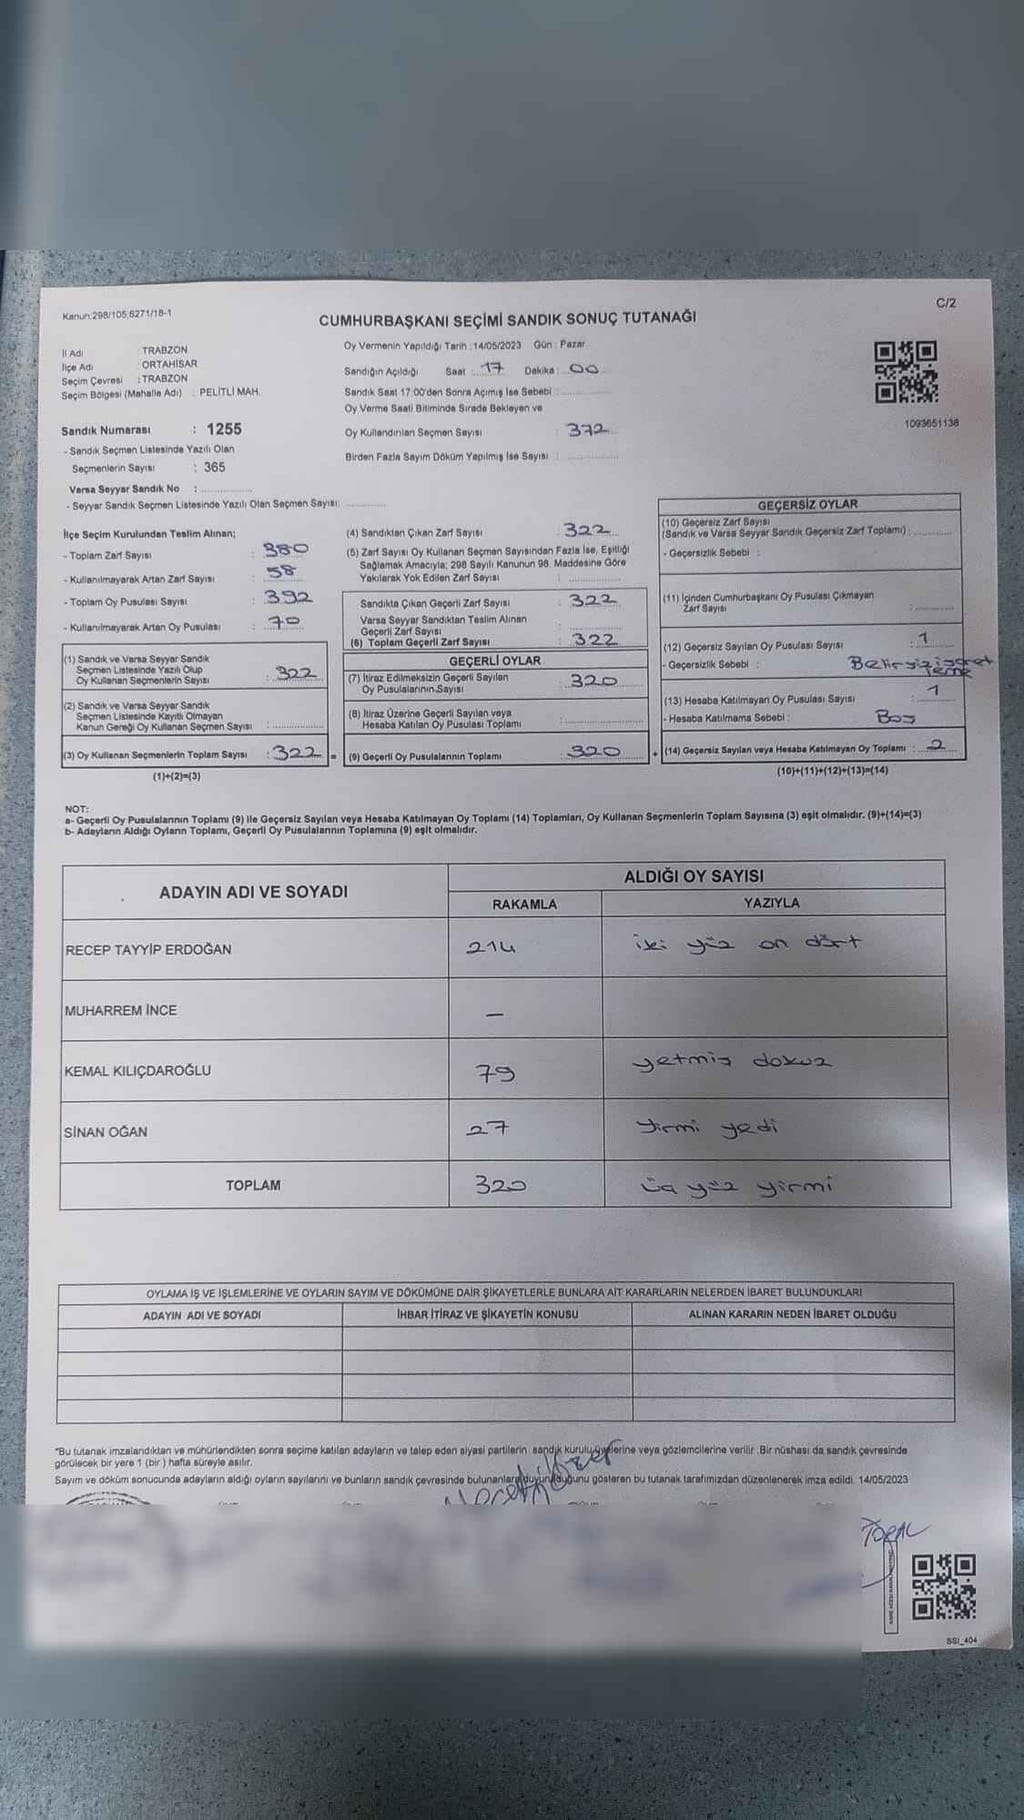 Kanun:298/105,6271/18-1
C/2
CUMHURBAŞKANI SEÇİMİ SANDIK SONUÇ TUTANAĞI
İl Adı : TRABZON
İlçe Adı : ORTAHİSAR
Seçim Çevresi : TRABZON
Seçim Bölgesi (Mahalle Adı) : PELİTLİ MAH.
Oy Vermenin Yapıldığı Tarih :14/05/2023 Gün : Pazar
Sandığın Açıldığı Saat : 17 Dakika : 00
Sandık Saat 17:00'den Sonra Açımış İse Sebebi :
Oy Verme Saati Bitiminde Sırada Bekleyen ve
Oy Kullandırılan Seçmen Sayısı : 372
Birden Fazla Sayım Döküm Yapılmış İse Sayısı :
1093651138
Sandık Numarası : 1255
- Sandık Seçmen Listesinde Yazılı Olan
Seçmenlerin Sayısı : 365
Varsa Seyyar Sandık No :
- Seyyar Sandık Seçmen Listesinde Yazılı Olan Seçmen Sayısı:
İlçe Seçim Kurulundan Teslim Alınan;
- Toplam Zarf Sayısı : 380
- Kullanılmayarak Artan Zarf Sayısı : 58
- Toplam Oy Pusulası Sayısı : 392
- Kullanılmayarak Artan Oy Pusulası : 70
(1) Sandık ve Varsa Seyyar Sandık
Seçmen Listesinde Yazılı Olup
Oy Kullanan Seçmenlerin Sayısı : 322
(2) Sandık ve Varsa Seyyar Sandık
Seçmen Listesinde Kayıtlı Olmayan
Kanun Gereği Oy Kullanan Seçmen Sayısı :
(3) Oy Kullanan Seçmenlerin Toplam Sayısı : 322 =
(1)+(2)=(3)
(4) Sandıktan Çıkan Zarf Sayısı : 322
(5) Zarf Sayısı Oy Kullanan Seçmen Sayısından Fazla İse, Eşitliği
Sağlamak Amacıyla; 298 Sayılı Kanunun 98. Maddesine Göre
Yakılarak Yok Edilen Zarf Sayısı :
Sandıkta Çıkan Geçerli Zarf Sayısı : 322
Varsa Seyyar Sandıktan Teslim Alınan
Geçerli Zarf Sayısı :
(6) Toplam Geçerli Zarf Sayısı : 322
GEÇERLİ OYLAR
(7) İtiraz Edilmeksizin Geçerli Sayılan
Oy Pusulalarının Sayısı : 320
(8) İtiraz Üzerine Geçerli Sayılan veya
Hesaba Katılan Oy Pusulası Toplamı :
(9) Geçerli Oy Pusulalarının Toplamı : 320 +
GEÇERSİZ OYLAR
(10) Geçersiz Zarf Sayısı
(Sandık ve Varsa Seyyar Sandık Geçersiz Zarf Toplamı) :
- Geçersizlik Sebebi :
(11) İçinden Cumhurbaşkanı Oy Pusulası Çıkmayan
Zarf Sayısı :
(12) Geçersiz Sayılan Oy Pusulası Sayısı : 1
- Geçersizlik Sebebi : Belirsiz işaretleme
(13) Hesaba Katılmayan Oy Pusulası Sayısı : 1
- Hesaba Katılmama Sebebi : Boş
(14) Geçersiz Sayılan veya Hesaba Katılmayan Oy Toplamı : 2
(10)+(11)+(12)+(13)=(14)
NOT:
a- Geçerli Oy Pusulalarının Toplamı (9) ile Geçersiz Sayılan veya Hesaba Katılmayan Oy Toplamı (14) Toplamları, Oy Kullanan Seçmenlerin Toplam Sayısına (3) eşit olmalıdır. (9)+(14)=(3)
b- Adayların Aldığı Oyların Toplamı, Geçerli Oy Pusulalarının Toplamına (9) eşit olmalıdır.
ADAYIN ADI VE SOYADI
ALDIĞI OY SAYISI
RAKAMLA YAZIYLA
RECEP TAYYİP ERDOĞAN 214 iki yüz on dört
MUHARREM İNCE —
KEMAL KILIÇDAROĞLU 79 yetmiş dokuz
SİNAN OĞAN 27 yirmi yedi
TOPLAM 320 üç yüz yirmi
OYLAMA İŞ VE İŞLEMLERİNE VE OYLARIN SAYIM VE DÖKÜMÜNE DAİR ŞİKAYETLERLE BUNLARA AİT KARARLARIN NELERDEN İBARET BULUNDUKLARI
ADAYIN ADI VE SOYADI İHBAR İTİRAZ VE ŞİKAYETİN KONUSU ALINAN KARARIN NEDEN İBARET OLDUĞU
*Bu tutanak imzalandıktan ve mühürlendikten sonra seçime katılan adayların ve talep eden siyasi partilerin sandık kurulu üyelerine veya gözlemcilerine verilir. Bir nüshası da sandık çevresinde
görülecek bir yere 1 (bir) hafta süreyle asılır.
Sayım ve döküm sonucunda adayların aldığı oyların sayılarını ve bunların sandık çevresinde bulunanlara duyurulduğunu gösteren bu tutanak tarafımızdan düzenlenerek imza edildi. 14/05/2023
TOPAL
SSI_404